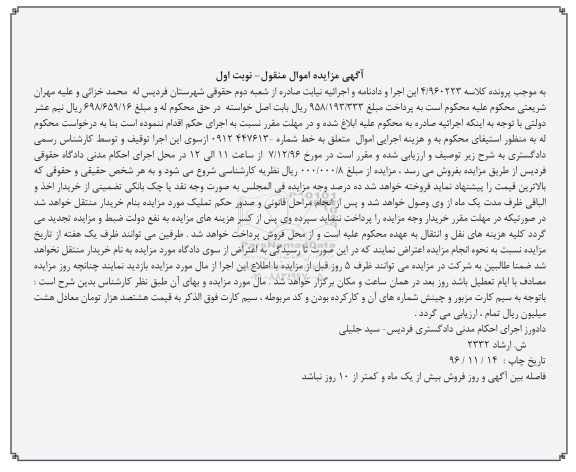 آگهی مزایده اموال منقول- نوبت اول
به موجب پرونده کلاسه ۴/۹۶۰۲۲۳ این اجرا و دادنامه و اجرائیه نیابت صادره از شعبه دوم حقوقی شهرستان فردیس له  محمد خزائی و علیه مهران
شریعتی محکوم علیه محکوم است به پرداخت مبلغ ۹۵۸/۱۹۳/۳۳۳ ریال بابت اصل خواسته  در حق محکوم له و مبلغ ۶۹۸/۶۵۹/۱۶ ریال نیم عشر
دولتی با توجه به اینکه اجرائیه صادره به محکوم علیه ابلاغ شده و در مهلت مقرر نسبت به اجرای حکم اقدام ننموده است بنا به درخواست محکوم
له به منظور استیفای محکوم به و هزینه اجرایی اموال  متعلق به خط شماره ۴۴۷۶۱۳- ۰۹۱۲ ازسوی این اجرا توقیف و توسط کارشناس رسمی
دادگستری به شرح زیر توصیف و ارزیابی شده و مقرر است در مورخ ۷/۱۲/۹۶  از ساعت ۱۱ الی ۱۲ در محل اجرای احکام مدنی دادگاه حقوقی
فردیس از طریق مزایده بفروش می رسد ، مزایده از مبلغ ۰۰۰/۰۰۰/۸ ریال نظریه کارشناسی شروع می شود و به هر شخص حقیقی و حقوقی که
بالاترین قیمت را پیشنهاد نماید فروخته خواهد شد ده درصد وجه مزایده فی المجلس به صورت وجه نقد یا چک بانکی تضمینی از خریدار اخذ و
الباقی ظرف مدت یک ماه از وی وصول خواهد شد و پس از انجام مراحل قانونی و صدور حکم تملیک مورد مزایده بنام خریدار منتقل خواهد شد
در صورتیکه در مهلت مقرر خریدار وجه مزایده را پرداخت ننماید سپرده وی پس از کسر هزینه های مزایده به نفع دولت ضبط و مزایده تجدید می
گردد کلیه هزینه های نقل و انتقال به عهده محکوم علیه است و از محل فروش پرداخت خواهد شد . طرفین می توانند ظرف یک هفته از تاریخ
مزایده نسبت به نحوه انجام مزایده اعتراض نمایند که در این صورت تا رسیدگی به اعتراض از سوی دادگاه مورد مزایده به نام خریدار منتقل نخواهد
شد ضمنا طالبین به شرکت در مزایده می توانند ظرف ۵ روز قبل از مزایده با اطلاع این اجرا از مال مورد مزایده بازدید نمایند چنانچه روز مزایده
مصادف با ایام تعطیل باشد روز بعد در همان ساعت و مکان برگزار خواهد شد . مال مورد مزایده و بهای آن طبق نظر کارشناس بدین شرح است :
باتوجه به سیم کارت مزبور و چینش شماره های آن و کارکرده بودن و کد مربوطه ، سیم کارت فوق الذکر به قیمت هشتصد هزار تومان معادل هشت
میلیون ریال تمام ، ارزیابی می گردد .
دادورز اجرای احکام مدنی دادگستری فردیس- سید جلیلی
ش. ارشاد ۲۳۳۲
تاریخ چاپ :  ۱۴ / ۱۱ / ۹۶
فاصله بین آگهی و روز فروش بیش از یک ماه و کمتر از ۱۰ روز نباشد